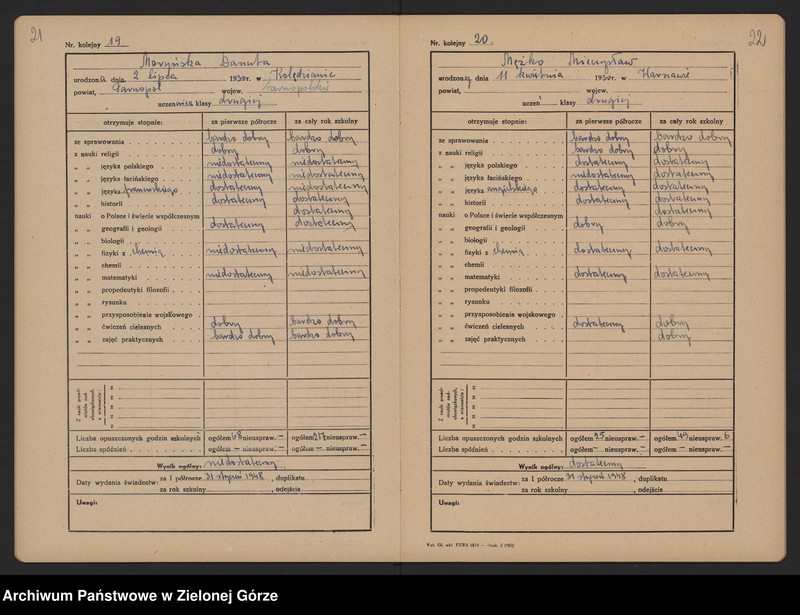 21
Nr. kolejny 19
Danuta
urodzona dnia 2 lipca 1930 r. w
powiat, Tarnopol wojew. tarnopolskie
uczennica klasy drugiej
otrzymuje stopnie: za pierwsze półrocze za cały rok szkolny
ze sprawowania bardzo dobry bardzo dobry
z nauki religii dobry dobry
„ „ języka polskiego niedostateczny niedostateczny
„ „ języka łacińskiego niedostateczny niedostateczny
„ „ języka francuskiego dostateczny dostateczny
„ „ historii dostateczny dostateczny
nauki o Polsce i świecie współczesnym dostateczny
„ „ geografii i geologii dostateczny dostateczny
„ „ biologii
„ „ fizyki z chemią niedostateczny niedostateczny
„ „ chemii
„ „ matematyki niedostateczny niedostateczny
„ „ propedeutyki filozofii
„ „ rysunku
„ „ przysposobienia wojskowego
„ „ ćwiczeń cielesnych dobry bardzo dobry
„ „ zajęć praktycznych bardzo dobry bardzo dobry
Z nauki przedmiotów nadobowiązkowych, a mianowicie:
Liczba opuszczonych godzin szkolnych ogółem 68 nieuspraw. – ogółem 217 nieuspraw. –
Liczba spóźnień ogółem – nieuspraw. – ogółem – nieuspraw. –
Wynik ogólny: niedostateczny
Daty wydania świadectw: za I półrocze 31 styczeń 1948, duplikatu
za rok szkolny, odejścia
Uwagi:
22
Nr. kolejny 20.
Mieczysław
urodzony dnia 11 kwietnia 1930 r. w Warszawie
powiat, wojew.
uczeń klasy drugiej
otrzymuje stopnie: za pierwsze półrocze za cały rok szkolny
ze sprawowania bardzo dobry bardzo dobry
z nauki religii bardzo dobry dobry
„ „ języka polskiego dostateczny dostateczny
„ „ języka łacińskiego niedostateczny dostateczny
„ „ języka angielskiego dostateczny dostateczny
„ „ historii dostateczny dostateczny
nauki o Polsce i świecie współczesnym dostateczny
„ „ geografii i geologii dobry dobry
„ „ biologii
„ „ fizyki z chemią dostateczny dostateczny
„ „ chemii
„ „ matematyki dostateczny dostateczny
„ „ propedeutyki filozofii
„ „ rysunku
„ „ przysposobienia wojskowego
„ „ ćwiczeń cielesnych dostateczny dobry
„ „ zajęć praktycznych dobry
Z nauki przedmiotów nadobowiązkowych, a mianowicie:
Liczba opuszczonych godzin szkolnych ogółem 25 nieuspraw. – ogółem 49 nieuspraw. 6
Liczba spóźnień ogółem – nieuspraw. – ogółem – nieuspraw. –
Wynik ogólny: dostateczny
Daty wydania świadectw: za I półrocze 31 styczeń 1948, duplikatu
za rok szkolny, odejścia
Uwagi:
Archiwum Państwowe w Zielonej Górze